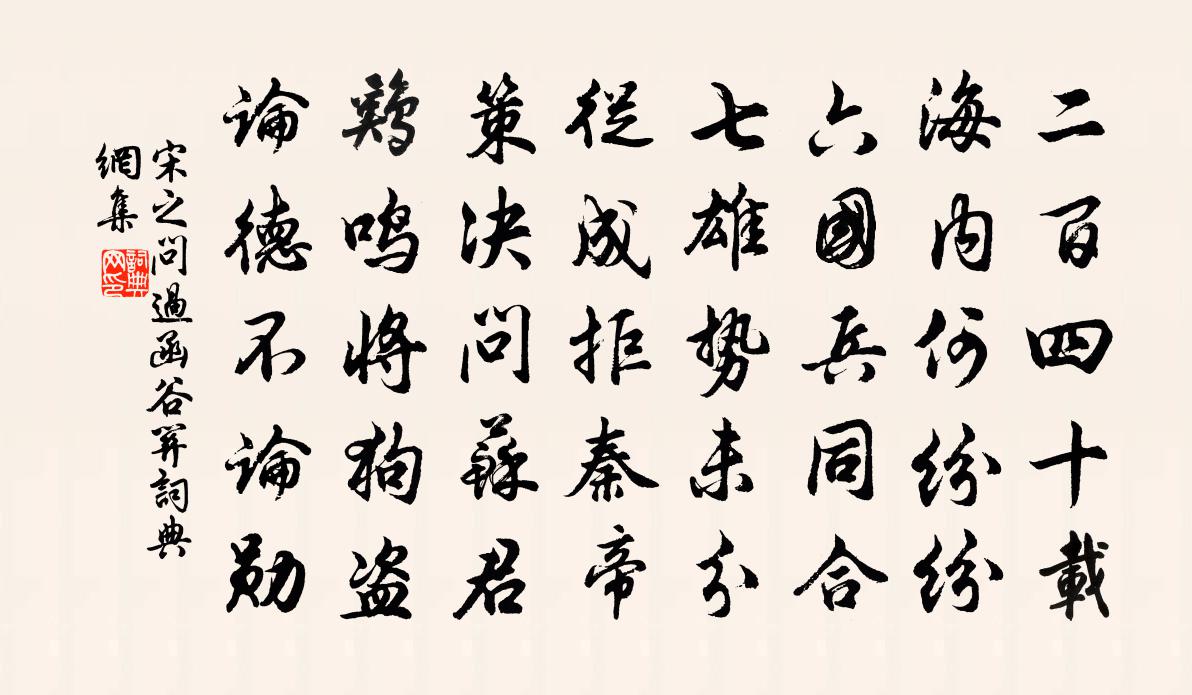 二百四十載
海内何紛紛
六國兵同合
七雄勢未分
從成拒秦帝
策決問蘇君
鷄鳴將狗盗
論德不論勋
宋之問過函谷関詞典
網集
詞典
网印